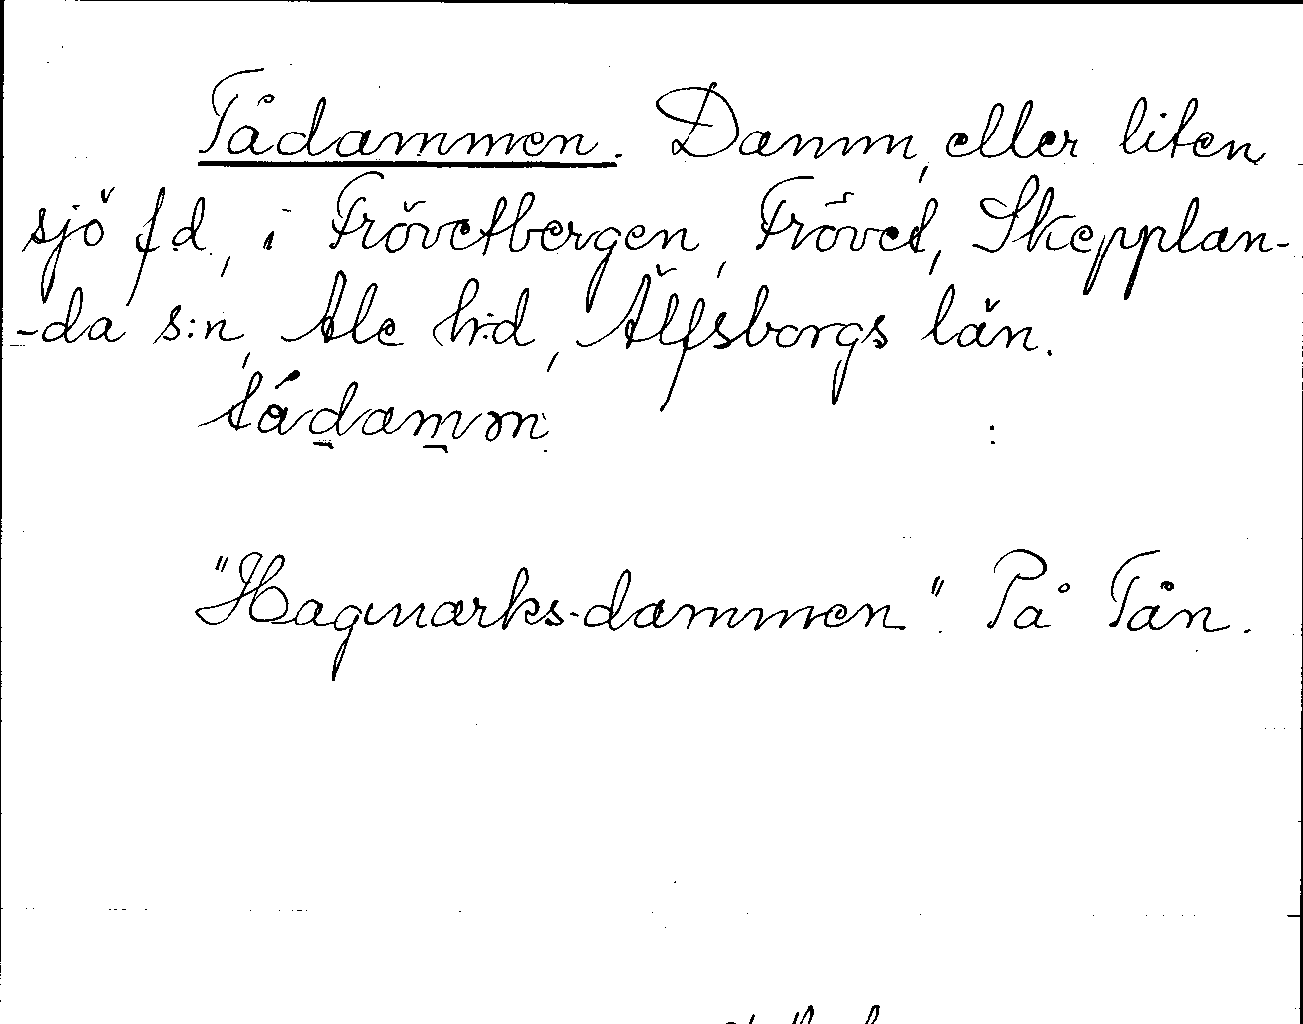 Tådammen. Damm, eller liten
sjö f.d., i Frövetbergen, Frövet, Skepplan-
-da s:n, Ale h:d, Älfsborgs län.
tådamm
"Hagmarks-dammen". På Tån.